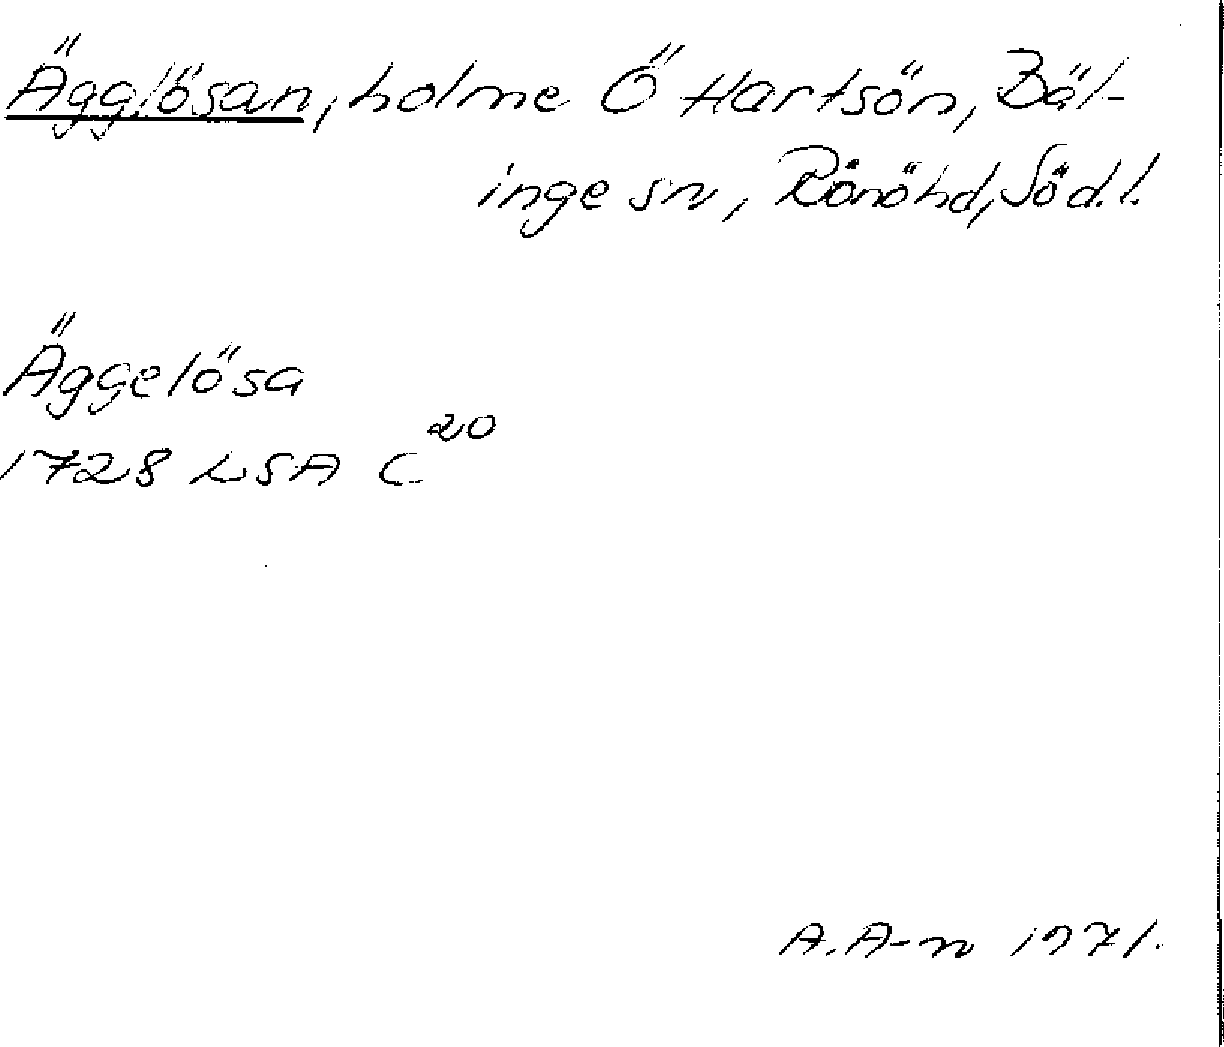 Ägglösan, holme Ö Hartsön, Bäl-
inge sn, Rönöhd, Söd.l.
Äggelösa
1728 LSA C 20
A.A-n 1971.